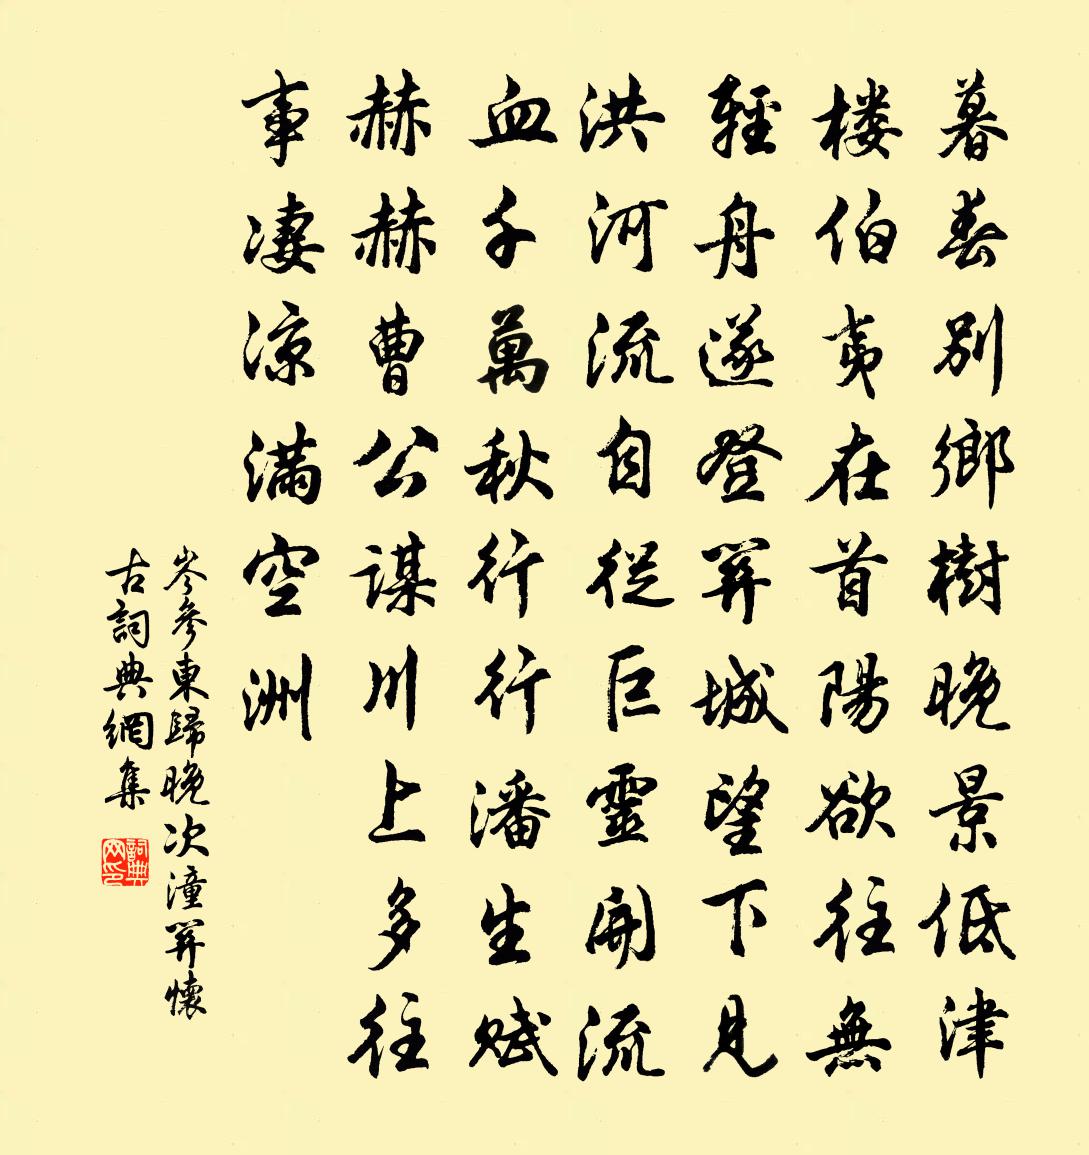 暮春别鄉樹晚景低津
楼伯夷在首陽欲往無
輕舟遂登關城望下見
洪河流自從巨靈開流
血千萬秋行行潘生賦
赫赫曹公謀川上多往
事凄涼满空洲
岑參東歸晚次潼關懷
古詞典網集
詞典网印